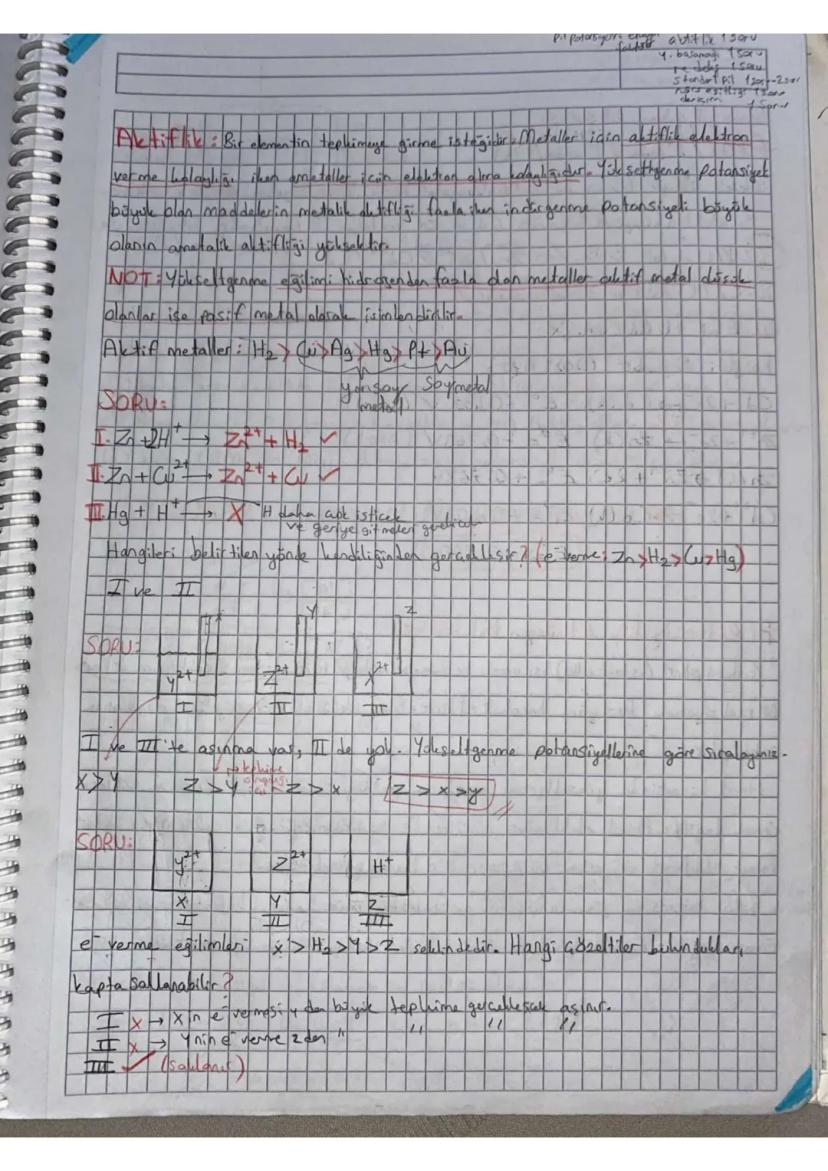 pil potansiyeli aktiflik 1 soru
y. basamağı 1 soru
1 soru
standart pil 1 soru-2 soru
derişim 1 soru
Aktiflik: Bir elementin tepkimeye girme isteğidir. Metaller için aktiflik elektron
verme kolaylığı iken ametaller için elektron alma kolaylığıdır. Yükseltgenme potansiyeli
büyük olan maddelerin metalik aktifliği fazla iken indirgenme potansiyeli büyük
olanın ametalik aktifliği yüksektir.
NOT: Yükseltgenme eğilimi hidrojenden fazla olan metaller aktif metal düşük
olanlar ise pasif metal olarak isimlendirilir.
Aktif metaller: H₂ > Cu > Ag > Hg > Pt > Au
yarısoy metal Soymetal
SORU:
I. Zn + 2H⁺ → Zn²⁺ + H₂ ✓
II. Zn + Cu²⁺ → Zn²⁺ + Cu ✓
III. Hg + H⁺ → X H daha çok isticek
ve geriye gitmeleri
Hangileri belirtilen yönde kendiliğinden gerçekleşir? (e⁻ verme: Zn > H₂ > Cu > Hg)
I ve II
SORU:
X Y Z
Y²⁺ Z²⁺ X²⁺
I II III
I ve III'te aşınma var, II de yok. Yükseltgenme potansiyellerine göre sıralayınız.
X > Y Z > Y tepkime Z > X Z > X > Y
SORU:
Y²⁺ Z²⁺ H⁺
X Y Z
I II III
e⁻ verme eğilimleri X > H₂ > Y > Z şeklindedir. Hangi çözeltiler bulundukları
kapta saklanabilir?
I X → X in e⁻ vermesi y den büyük tepkime gerçekleşcek aşınır.
II X → Y nin e⁻ verme z den " " " "
III ✓ (saklanır)